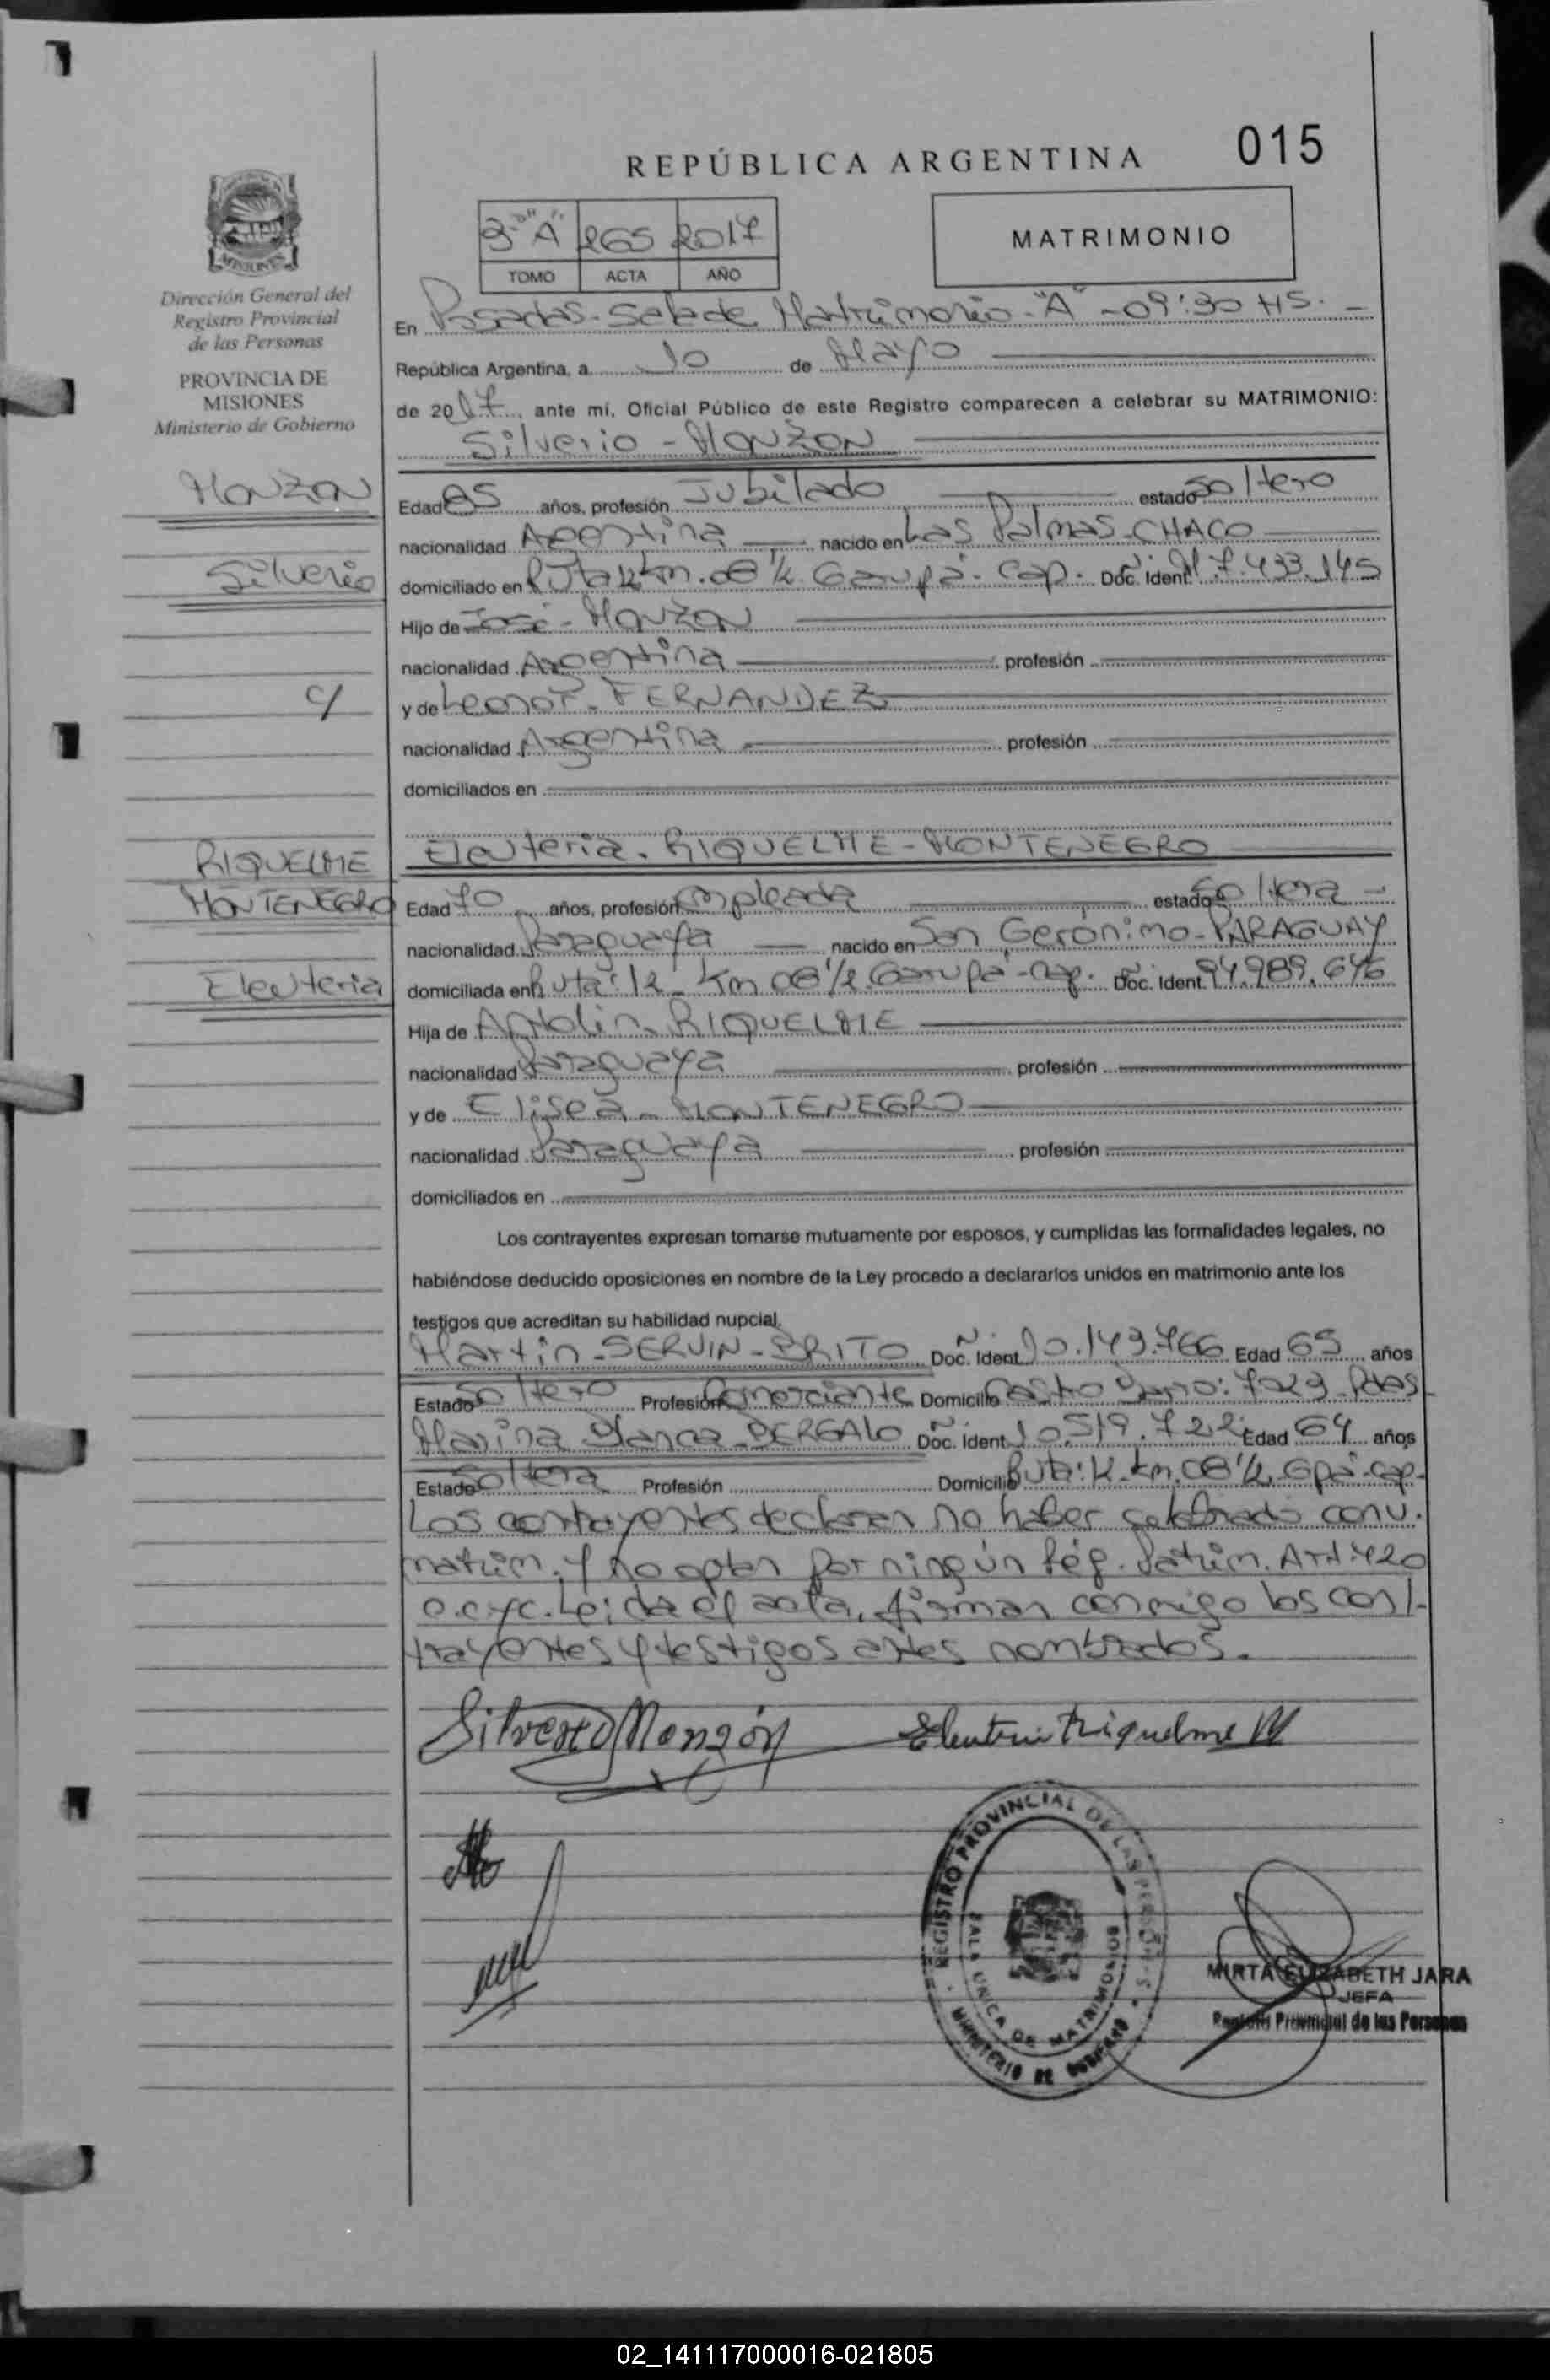 015
REPÚBLICA ARGENTINA
3º "A" 265 2017
TOMO ACTA AÑO
MATRIMONIO
MISIONES
Dirección General del
Registro Provincial
de las Personas
PROVINCIA DE
MISIONES
Ministerio de Gobierno
En Posadas - Sala de Matrimonio - "A" - 09:30 HS. -
República Argentina, a 10 de Mayo
de 2017, ante mí, Oficial Público de este Registro comparecen a celebrar su MATRIMONIO:
Silverio - MONZON
MONZON
Silverio
Edad 85 años, profesión Jubilado estado Soltero
nacionalidad Argentina nacido en Las Palmas - CHACO
domiciliado en Ruta 12 Km. 08 1/2 Garupá - Cap. Doc. Ident. 7.433.145
Hijo de José - MONZON
nacionalidad Argentina profesión
c/
y de Leonor - FERNANDEZ
nacionalidad Argentina profesión
domiciliados en
RIQUELME
MONTENEGRO
Eleuteria
Eleuteria - RIQUELME - MONTENEGRO
Edad 70 años, profesión empleada estado Soltera -
nacionalidad Paraguaya nacido en San Gerónimo - PARAGUAY
domiciliada en Ruta: 12 - Km 08 1/2 Garupá - Cap. Doc. Ident. 94.989.646
Hija de Antolín - RIQUELME
nacionalidad Paraguaya profesión
y de Elisea - MONTENEGRO
nacionalidad Paraguaya profesión
domiciliados en
Los contrayentes expresan tomarse mutuamente por esposos, y cumplidas las formalidades legales, no
habiéndose deducido oposiciones en nombre de la Ley procedo a declararlos unidos en matrimonio ante los
testigos que acreditan su habilidad nupcial.
Martín - SERVIN - BRITO Doc. Ident. 10.149.766 Edad 65 años
Estado Soltero Profesión Comerciante Domicilio 7029 Pdas
Marina Blanca BERGALO Doc. Ident. 10.519.722 Edad 64 años
Estado Soltera Profesión Domicilio Ruta: 12 - Km. 08 1/2 Gpá - Cap.
Los contrayentes declaran no haber celebrado conv.
matrim. y no optan por ningún Rég. Patrim. Art. 420
C.C y C. Leida el acta, firman conmigo los con/-
trayentes y testigos antes nombrados.
Silverio Monzón Eleuteria Riquelme M
REGISTRO PROVINCIAL DE LAS PERSONAS
SALA UNICA DE MATRIMONIOS
MINISTERIO DE GOBIERNO
MIRTA ELIZABETH JARA
JEFA
Registro Provincial de las Personas
02_141117000016-021805